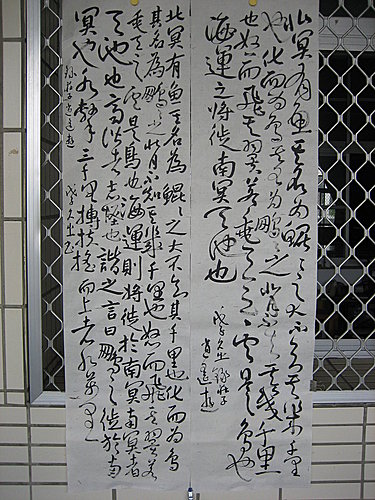 北冥有魚其名為鯤〻之大不知其幾千里
也化而為鳥其名為鵬〻之背不知其幾千里
也怒而飛其翼若垂天之雲是鳥也
海運之將徙南冥天池也
久生錄莊子
逍遙遊
北冥有魚其名為鯤〻之大不知其千里也化而為鳥
其名為鵬〻之背不知其幾千里也怒而飛其翼若
垂天之雲是鳥也海運則將徙於南冥南冥者
天池也齊諧者志怪也諧之言曰鵬之徙於南
冥也水擊三千里摶扶搖而上者九萬里
錄莊子逍遙遊 久生書